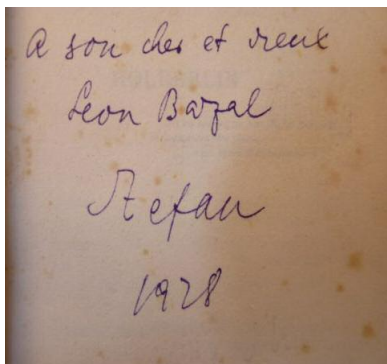 A son cher et vieux
Leon Bazal
Stefan
1928